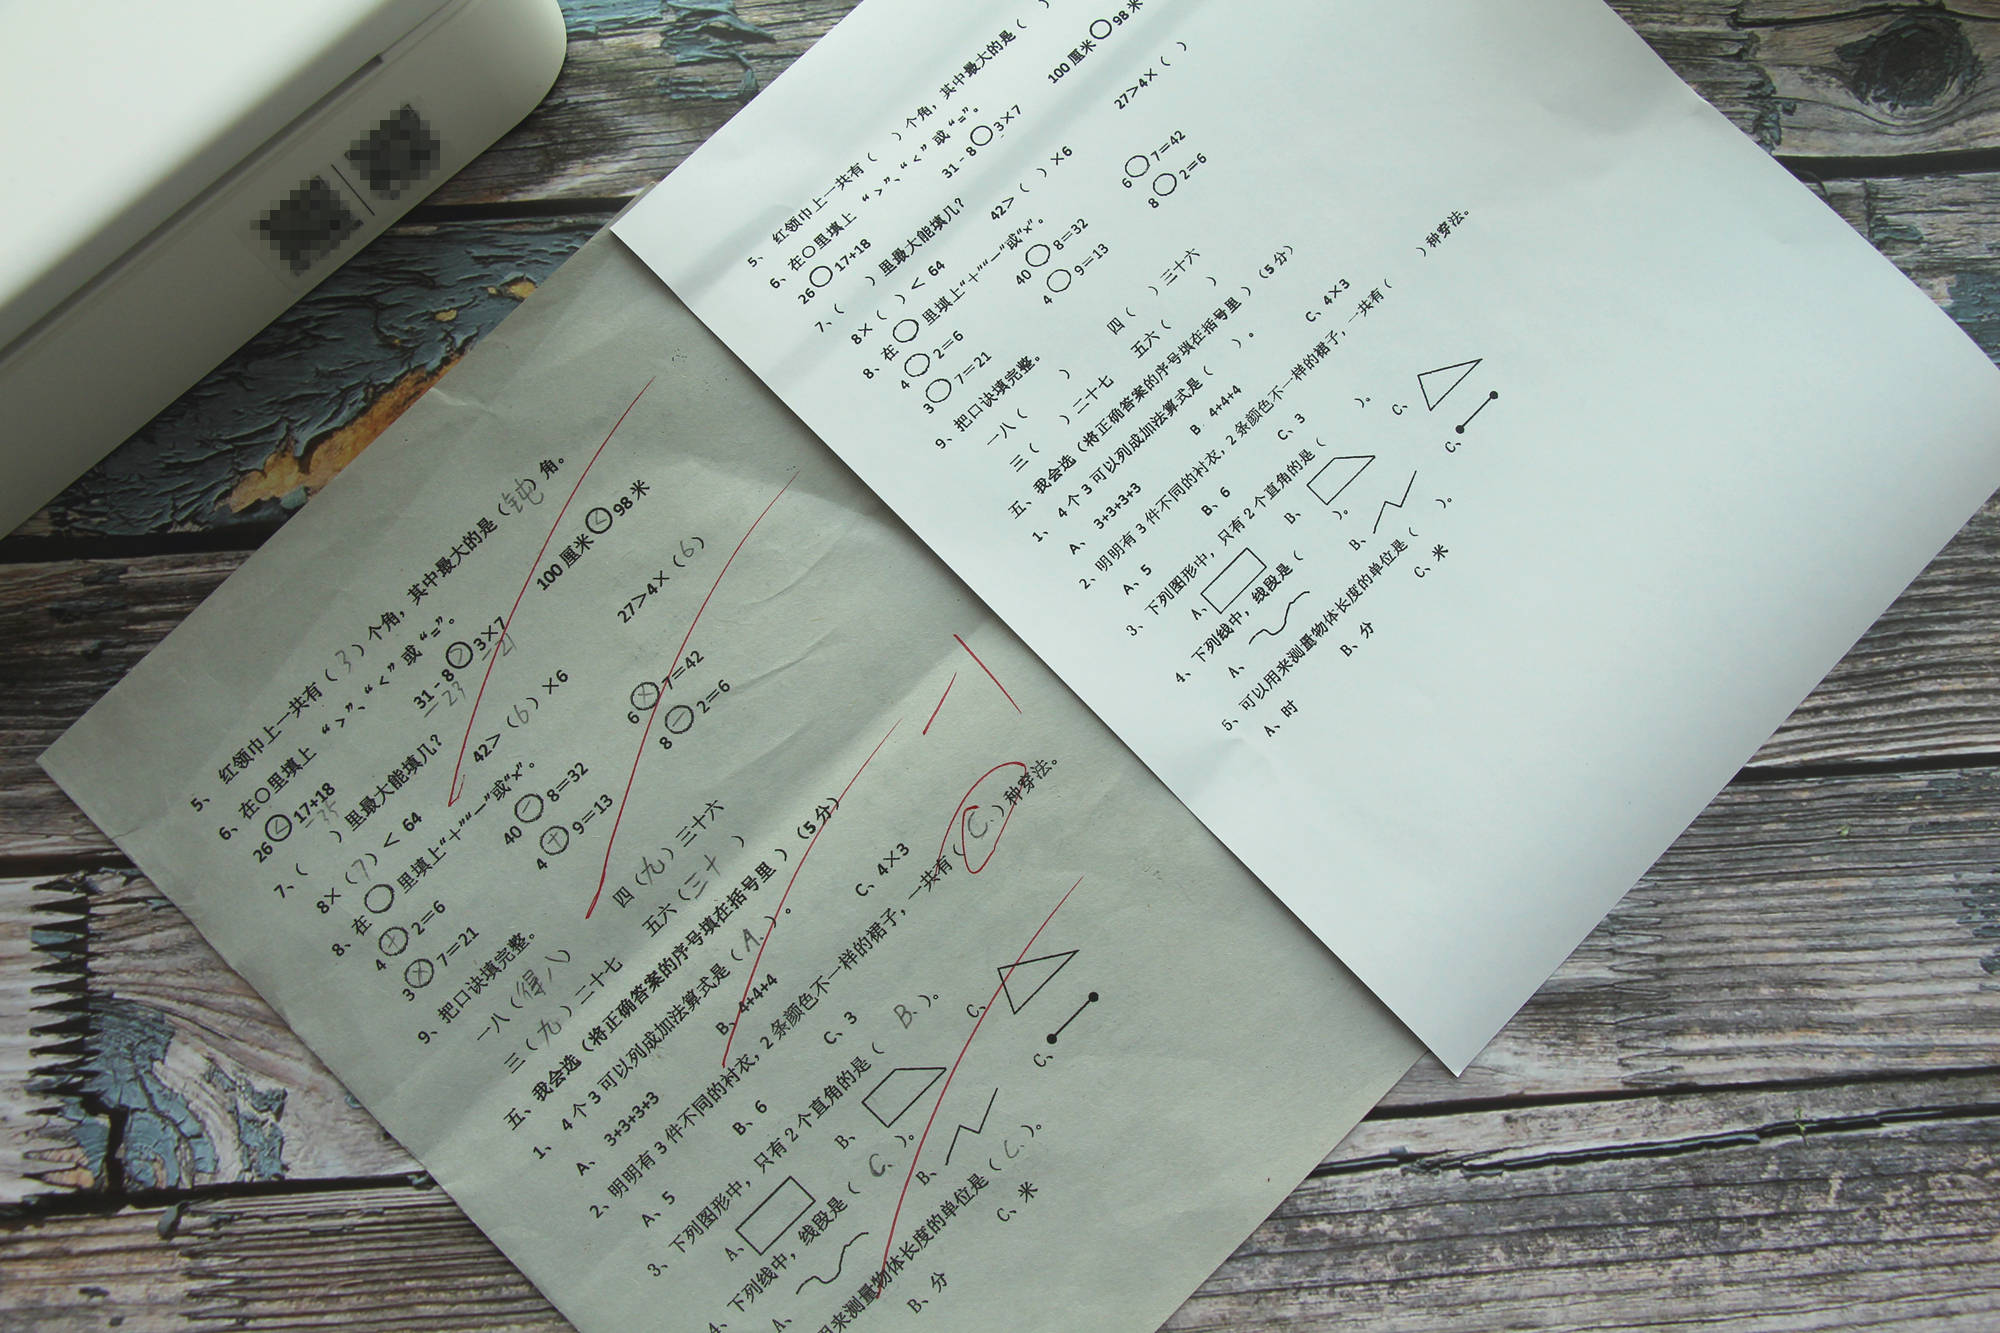 5、 红领巾上一共有（3）个角，其中最大的是（钝）角。
6、在○里填上 “＞”、“＜” 或 “=”。
26 < 17+18 =35 31 - 8 > 3×7 =23 =21 100 厘米 > 98 米
7、（ ）里最大能填几？
8×（7）＜ 64 42＞（6）×6 27＞4×（6）
8、在○里填上“＋”“－”或“×”。
4 + 2=6 40 － 8=32 6 × 7=42
3 × 7=21 4 + 9=13 8 － 2=6
9、把口诀填完整。
一八（得八） 四（九）三十六
三（九）二十七 五六（三十）
五、我会选（将正确答案的序号填在括号里）（5 分）
1、 4 个 3 可以列成加法算式是（A、）。
A、 3+3+3+3 B、4+4+4 C、4×3
-1
2、明明有 3 件不同的衬衣，2 条颜色不一样的裙子，一共有（C、）种穿法。
A、5 B、6 C、3
3、下列图形中，只有 2 个直角的是（ B、）。
A、 B、 C、
4、下列线中，线段是（ C、）。
A、 B、 C、
用来测量物体长度的单位是（C、）。
B、分 C、米
5、 红领巾上一共有（ ）个角，其中最大的是（
6、在○里填上 “＞”、“＜” 或 “=”。
26○17+18 31 - 8○3×7 100 厘米○98 米
7、（ ）里最大能填几？
8×（ ）＜ 64 42＞（ ）×6 27＞4×（ ）
8、在○里填上“＋”“－”或“×”。
4○2=6 40○8=32 6○7=42
3○7=21 4○9=13 8○2=6
9、把口诀填完整。
一八（ ） 四（ ）三十六
三（ ）二十七 五六（ ）
五、我会选（将正确答案的序号填在括号里）（5 分）
1、 4 个 3 可以列成加法算式是（ ）。
A、 3+3+3+3 B 4+4+4 C、4×3
2、明明有 3 件不同的衬衣，2 条颜色不一样的裙子，一共有（ ）种穿法。
A、5 B、6 C、3
3、下列图形中，只有 2 个直角的是（ ）。
A、 B、 C、
4、下列线中，线段是（ ）。
A、 B、 C、
5、可以用来测量物体长度的单位是（ ）。
A、时 B、分 C、米